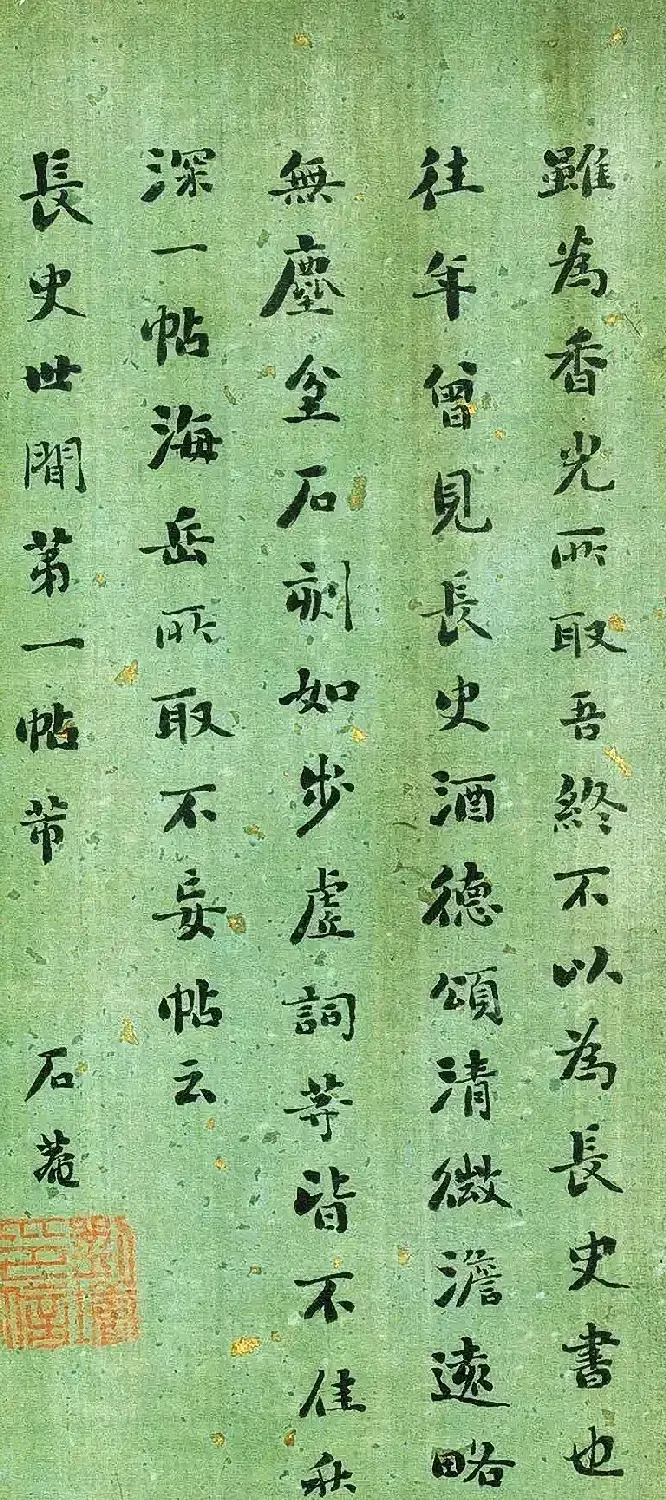 雖為香光所取吾終不以為長史書也
往年曾見長史酒德頌清微澹遠略
無塵坌石刻如步虛詞等皆不佳秋
深一帖海岳所取不妄帖云
長史世間第一帖芾 石菴
劉墉印信